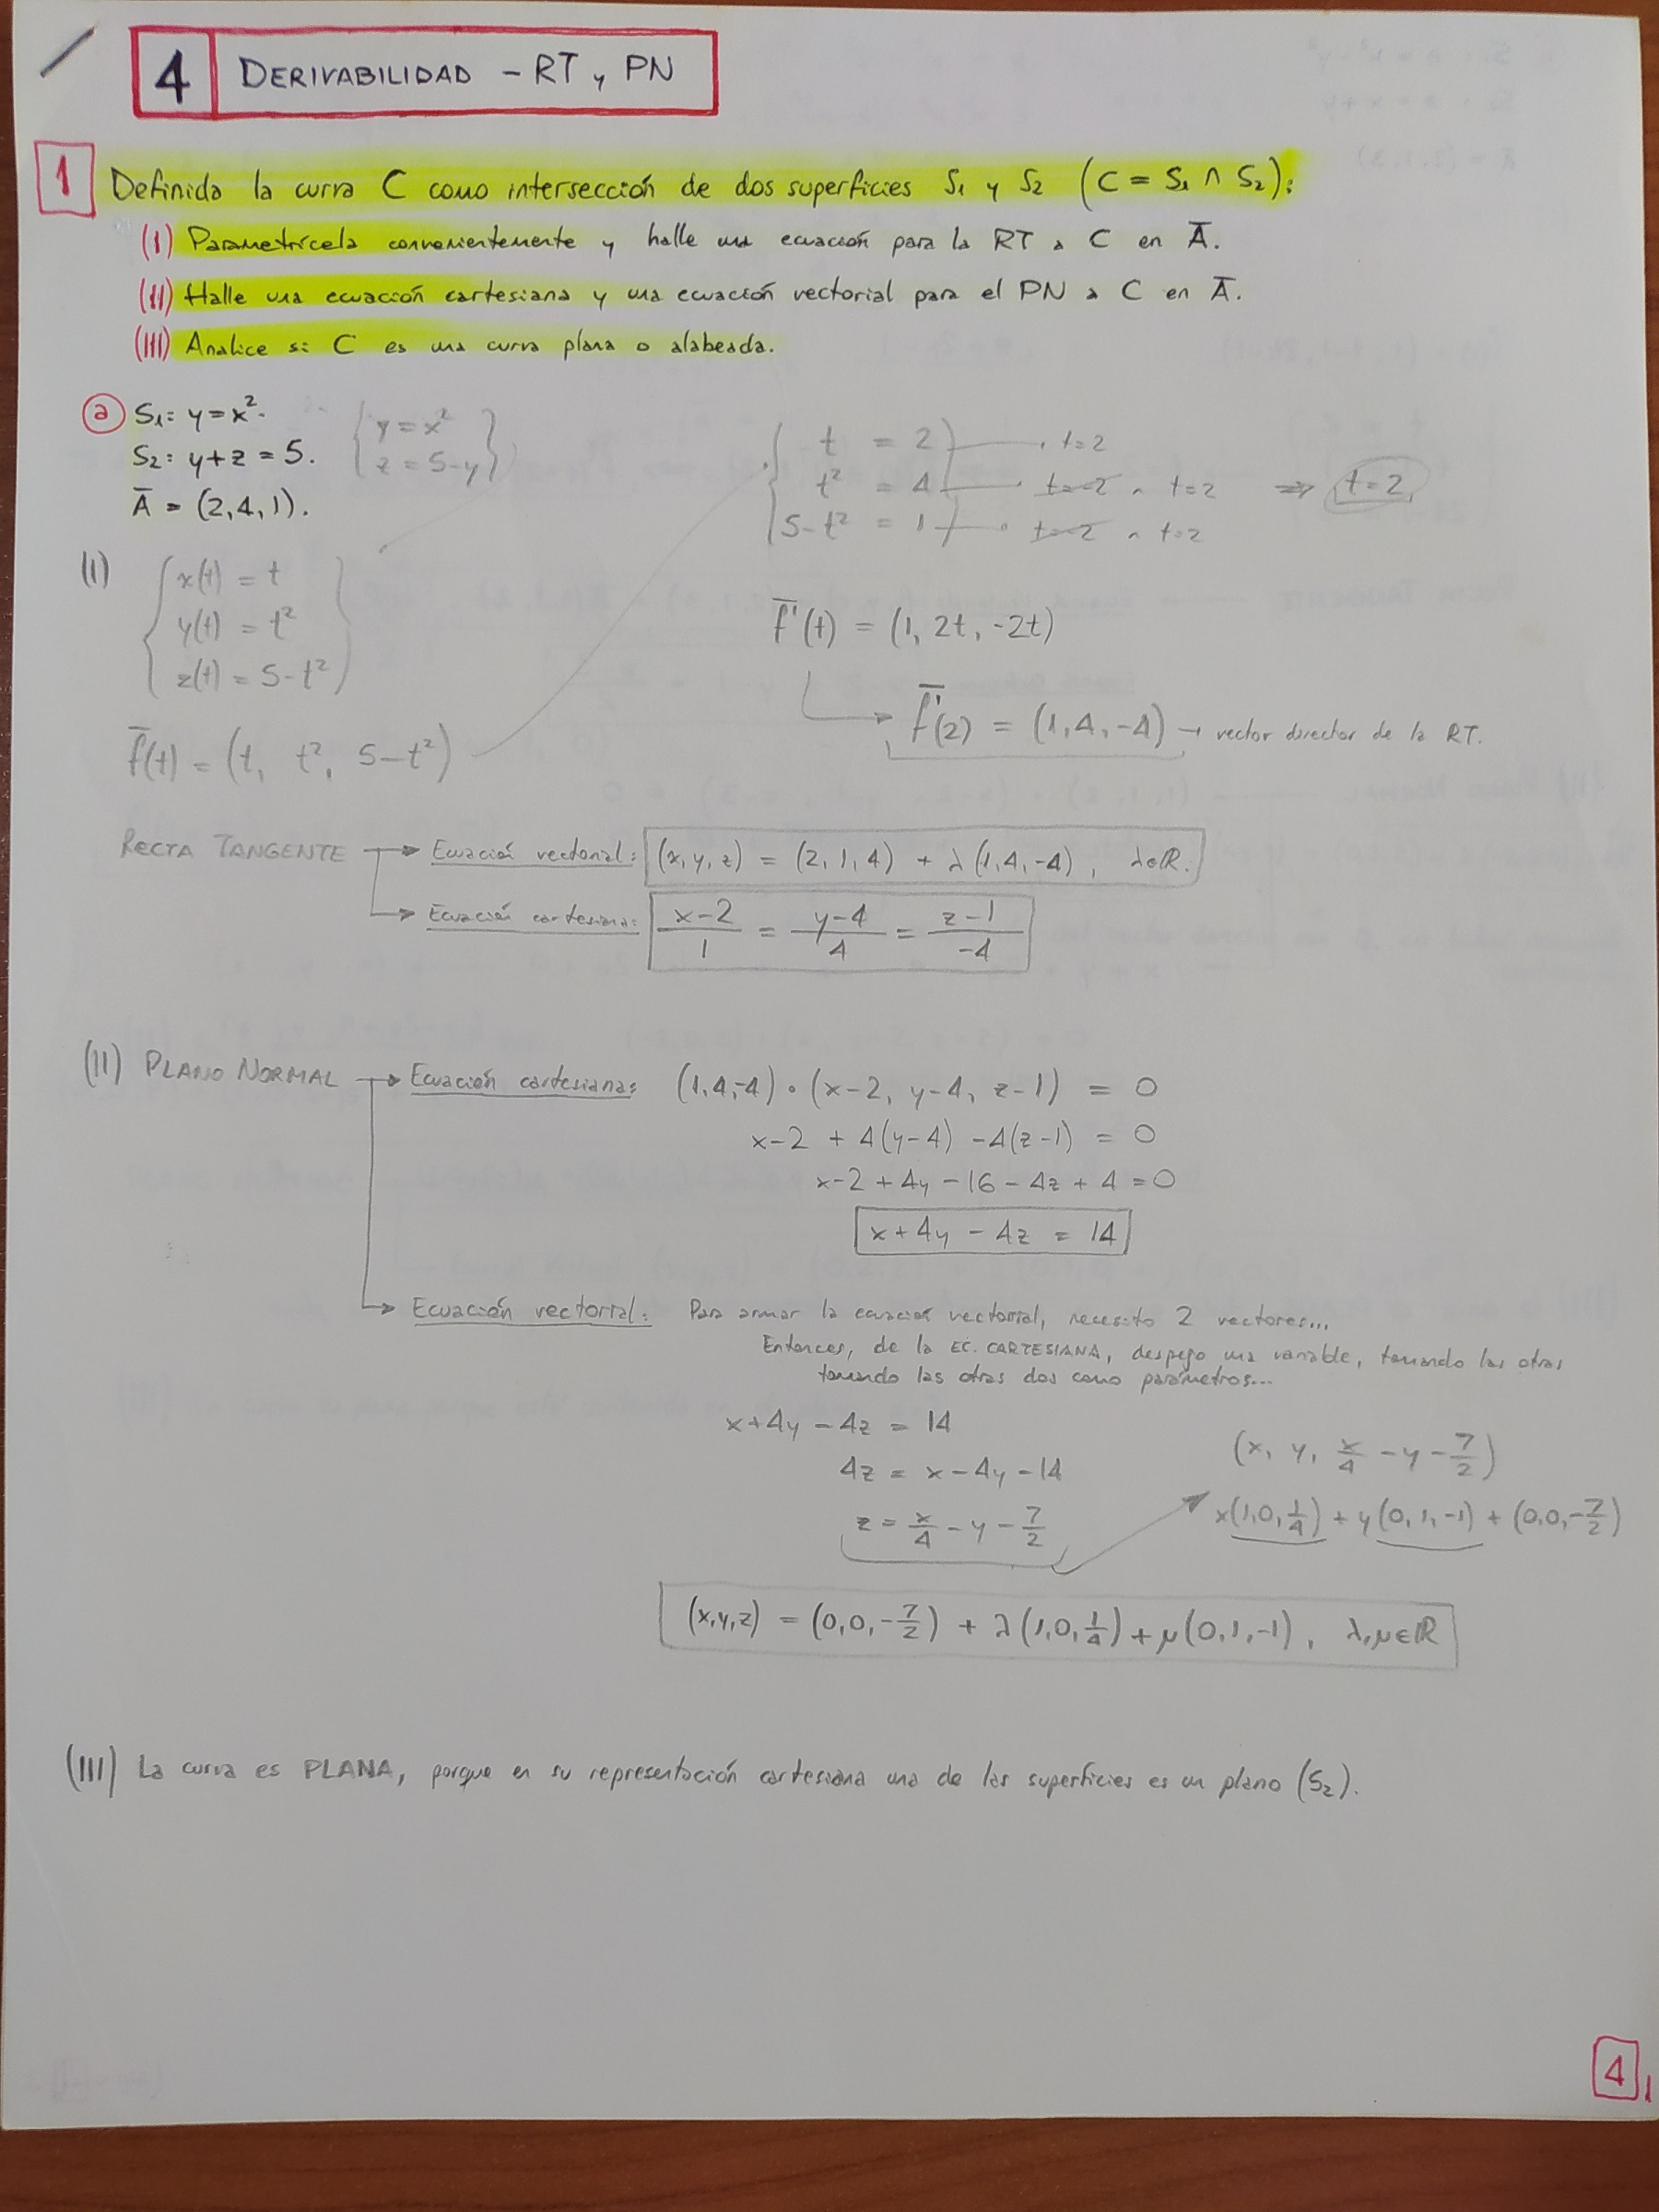 4 DERIVABILIDAD - RT y PN
1 Definida la curva C como intersección de dos superficies S₁ y S₂ (C = S₁ ∩ S₂):
(I) Parametrícela convenientemente y halle una ecuación para la RT a C en A̅.
(II) Halle una ecuación cartesiana y una ecuación vectorial para el PN a C en A̅.
(III) Analice si C es una curva plana o alabeada.
a S₁: y = x².
S₂: y + z = 5.
A̅ = (2,4,1).
{ y = x²
z = 5-y }
(I) { x(t) = t
y(t) = t²
z(t) = 5-t² }
f̅(t) = (t, t², 5-t²)
{ t = 2 t=2
t² = 4 t=-2 ∧ t=2 ⇒ t=2
5-t² = 1 t=-2 ∧ t=2
f̅'(t) = (1, 2t, -2t)
f̅'(2) = (1,4,-4) → vector director de la RT.
RECTA TANGENTE → Ecuación vectorial: (x,y,z) = (2,1,4) + λ(1,4,-4), λ∈ℝ.
→ Ecuación cartesiana: (x-2)/1 = (y-4)/4 = (z-1)/-4
(II) PLANO NORMAL → Ecuación cartesiana: (1,4,-4) • (x-2, y-4, z-1) = 0
x-2 + 4(y-4) -4(z-1) = 0
x-2+4y-16-4z+4 = 0
x+4y-4z = 14
→ Ecuación vectorial: Para armar la ecuación vectorial, necesito 2 vectores...
Entonces, de la EC. CARTESIANA, despejo una variable, tomando las otras
tomando las otras dos como parámetros...
x+4y-4z = 14
4z = x-4y-14
z = x/4 - y - 7/2
(x, y, x/4 - y - 7/2)
x(1,0,1/4) + y(0,1,-1) + (0,0,-7/2)
(x,y,z) = (0,0,-7/2) + λ(1,0,1/4) + μ(0,1,-1), λ,μ∈ℝ
(III) La curva es PLANA, porque en su representación cartesiana una de las superficies es un plano (S₂).
4 1